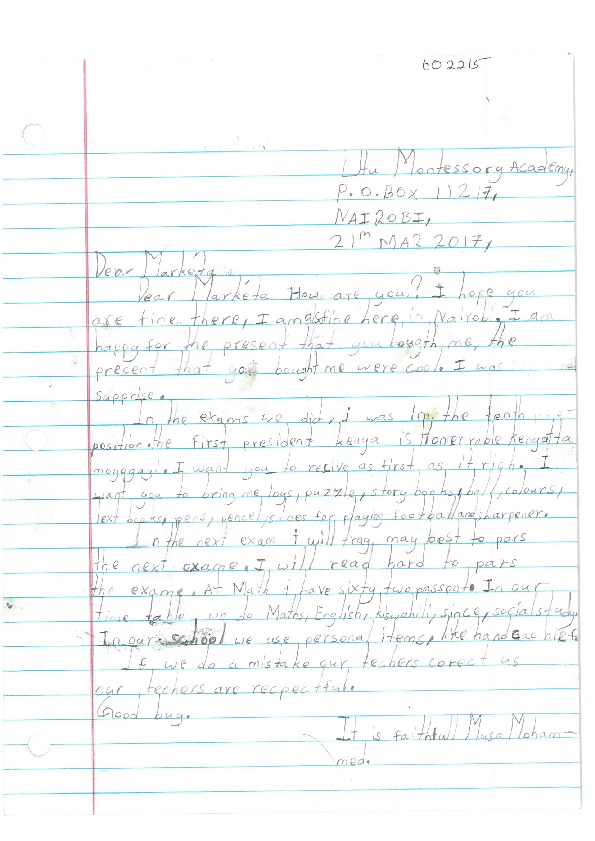 602215
Utu Montessory Academy,
P.O.BOX 11217,
NAIROBI,
21 MAR 2017,
Dear Markéta,
Dear Markéta How are you? I hope you
are fine there, I am fine here in Nairobi. I am
happy for the present that you me, the
precent that you bought me were cool. I was
supprise.
In the exams we did, i was in the tenth
position. the first president kenya is Honerrable Kenyatta
. I want you to recive as first as it rich. I
want you to bring me toys, puzzle, story books, ball, colours,
text books, pens, pencel, shoes for playing football and sharpener.
In the next exam i will tray may best to pars
the next exame. I will read hard to pars
the exame. At Math i have sixty two passent. In our
time table we do Maths, English, kiswahili, since, social study
In our school we use personal items, like hand cac hief.
If we do a mistake our techers corect us
our techers are recpectful.
Good buy.
It is faithfull Musa Moham-
med.